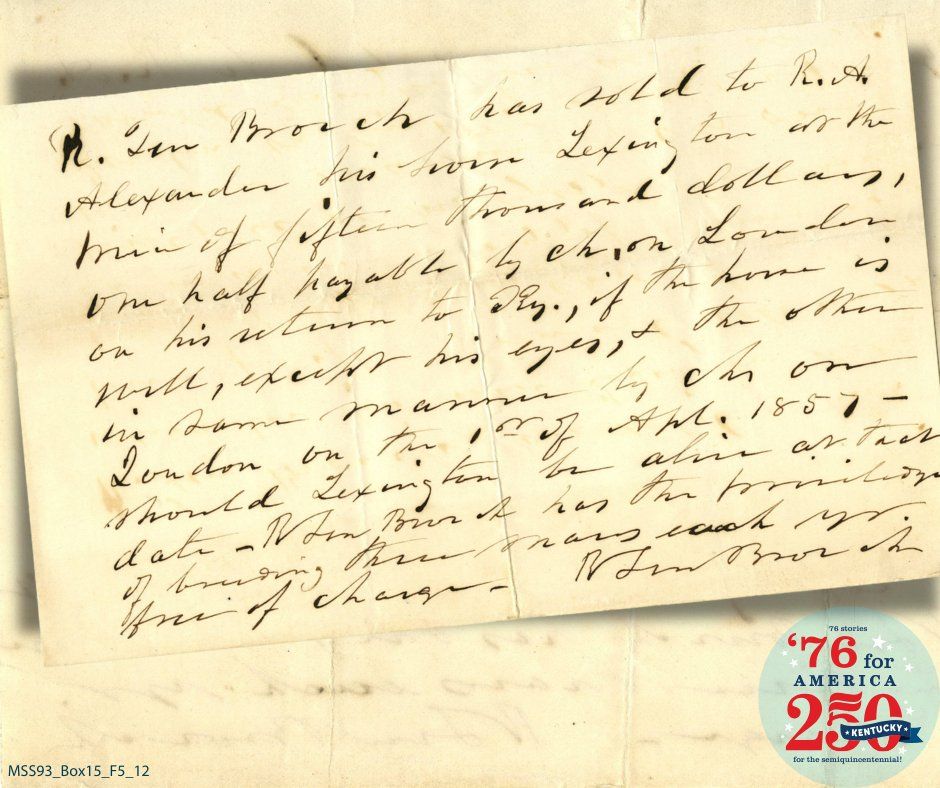 R. Ten Broeck has sold to R. A.
Alexander his horse Lexington at the
price of fifteen thousand dollars,
one half payable by ck, on London
on his return to Ky., if the horse is
well, except his eyes, & the other
in same manner by ck on
London on the 1st of Apl. 1857 –
should Lexington be alive at that
date – R Ten Broeck has the priviledge
of breeding three mares each yr.
free of charge –
R Ten Broeck
76 stories
'76 for
AMERICA
250
KENTUCKY
for the semiquincentennial!
MSS93_Box15_F5_12